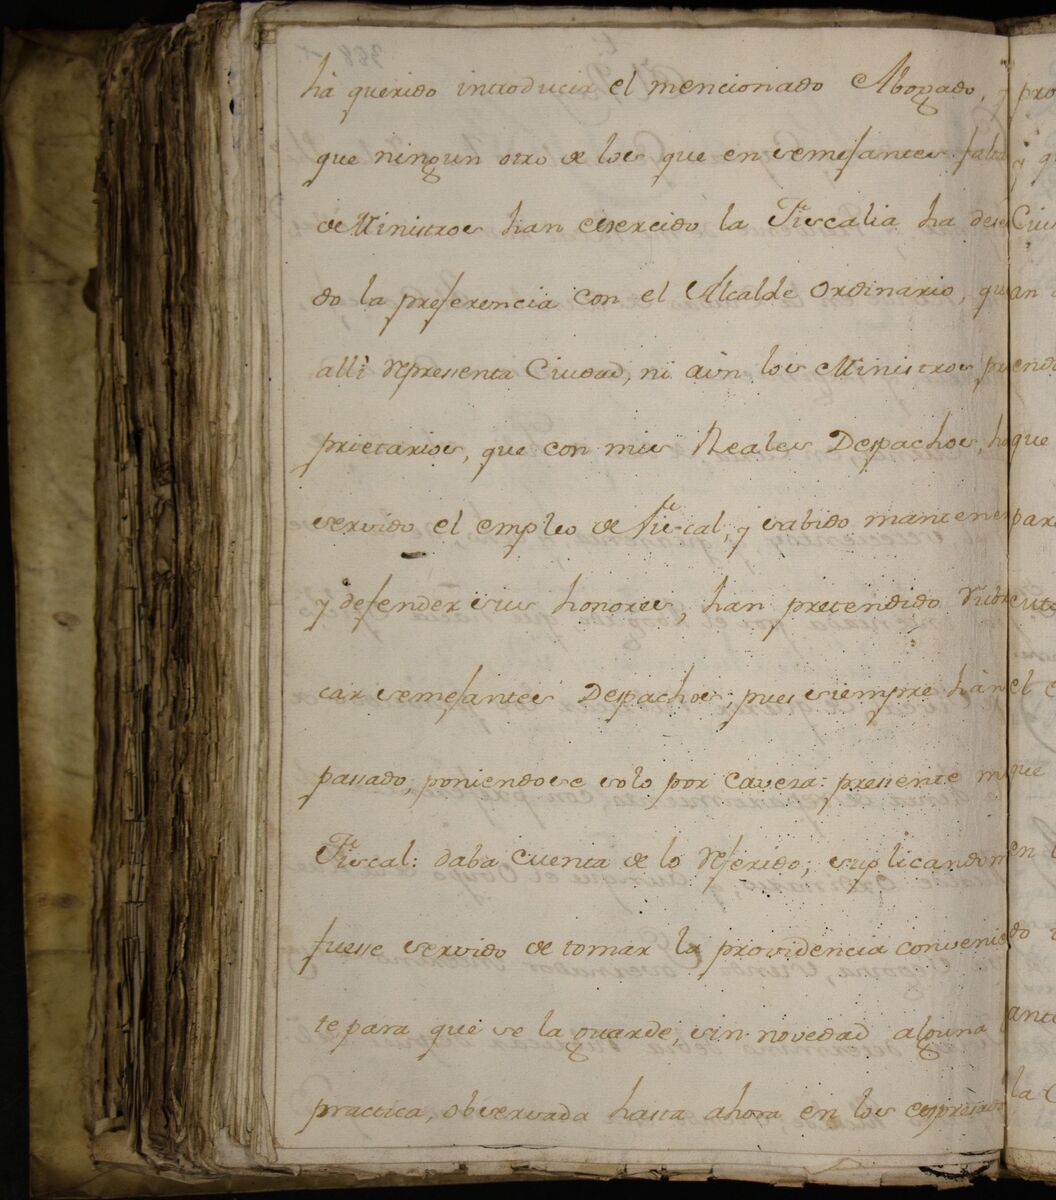 ha querido introducir el mencionado Abogado, y
que ningun otro de los que en semejantes faltas
de Ministros han exercido la Fiscalia ha desea
do la preferencia con el Alcalde Ordinario, que
alli representa Ciudad, ni aùn los Ministros pro
prietarios, que con mis Reales Despachos, han
servido el empleo de Fiscal, y sabido mantener
y defender sus honores, han pretendido rubri
car semejantes Despachos, pues siempre hàn
passado, poniendose solo por caveza: pressente mi
Fiscal: daba cuenta de lo referido; suplicandome
fuesse servido de tomar la providencia convenien
te para, que se la guarde, sin novedad alguna la
practica, observada hasta ahora en los expresados